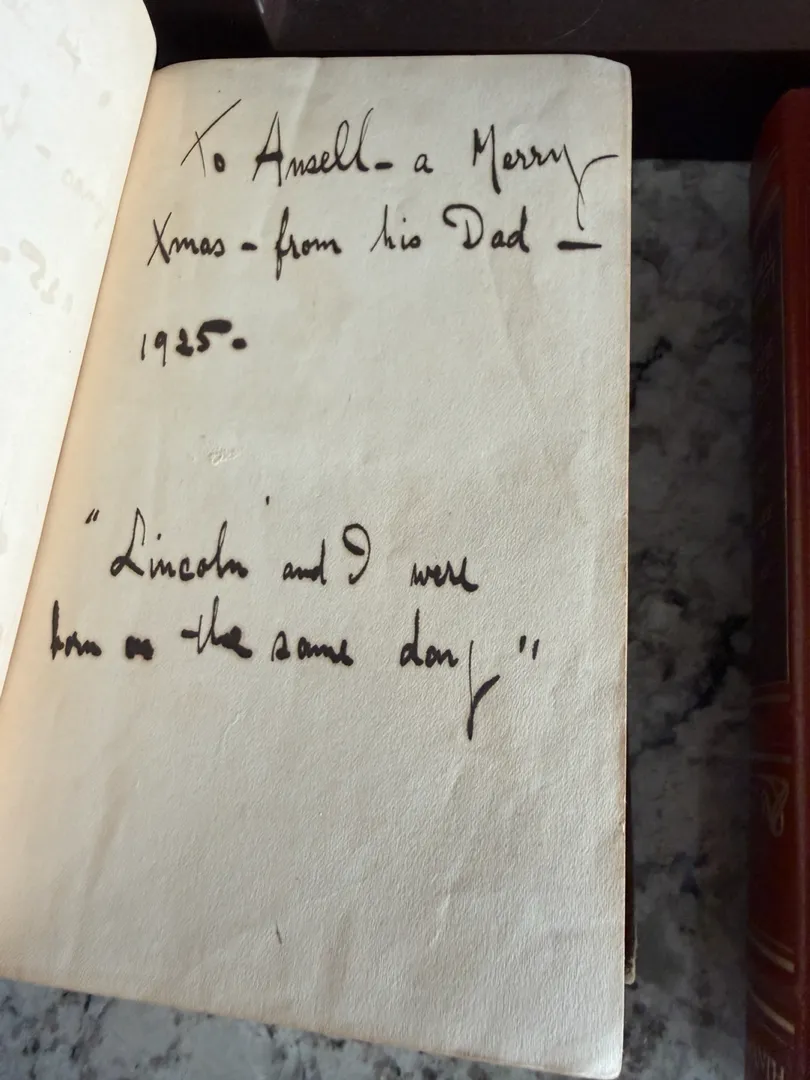 To Ansell – a Merry
Xmas – from his Dad –
1925.
"Lincoln' and I were
born on the same day"